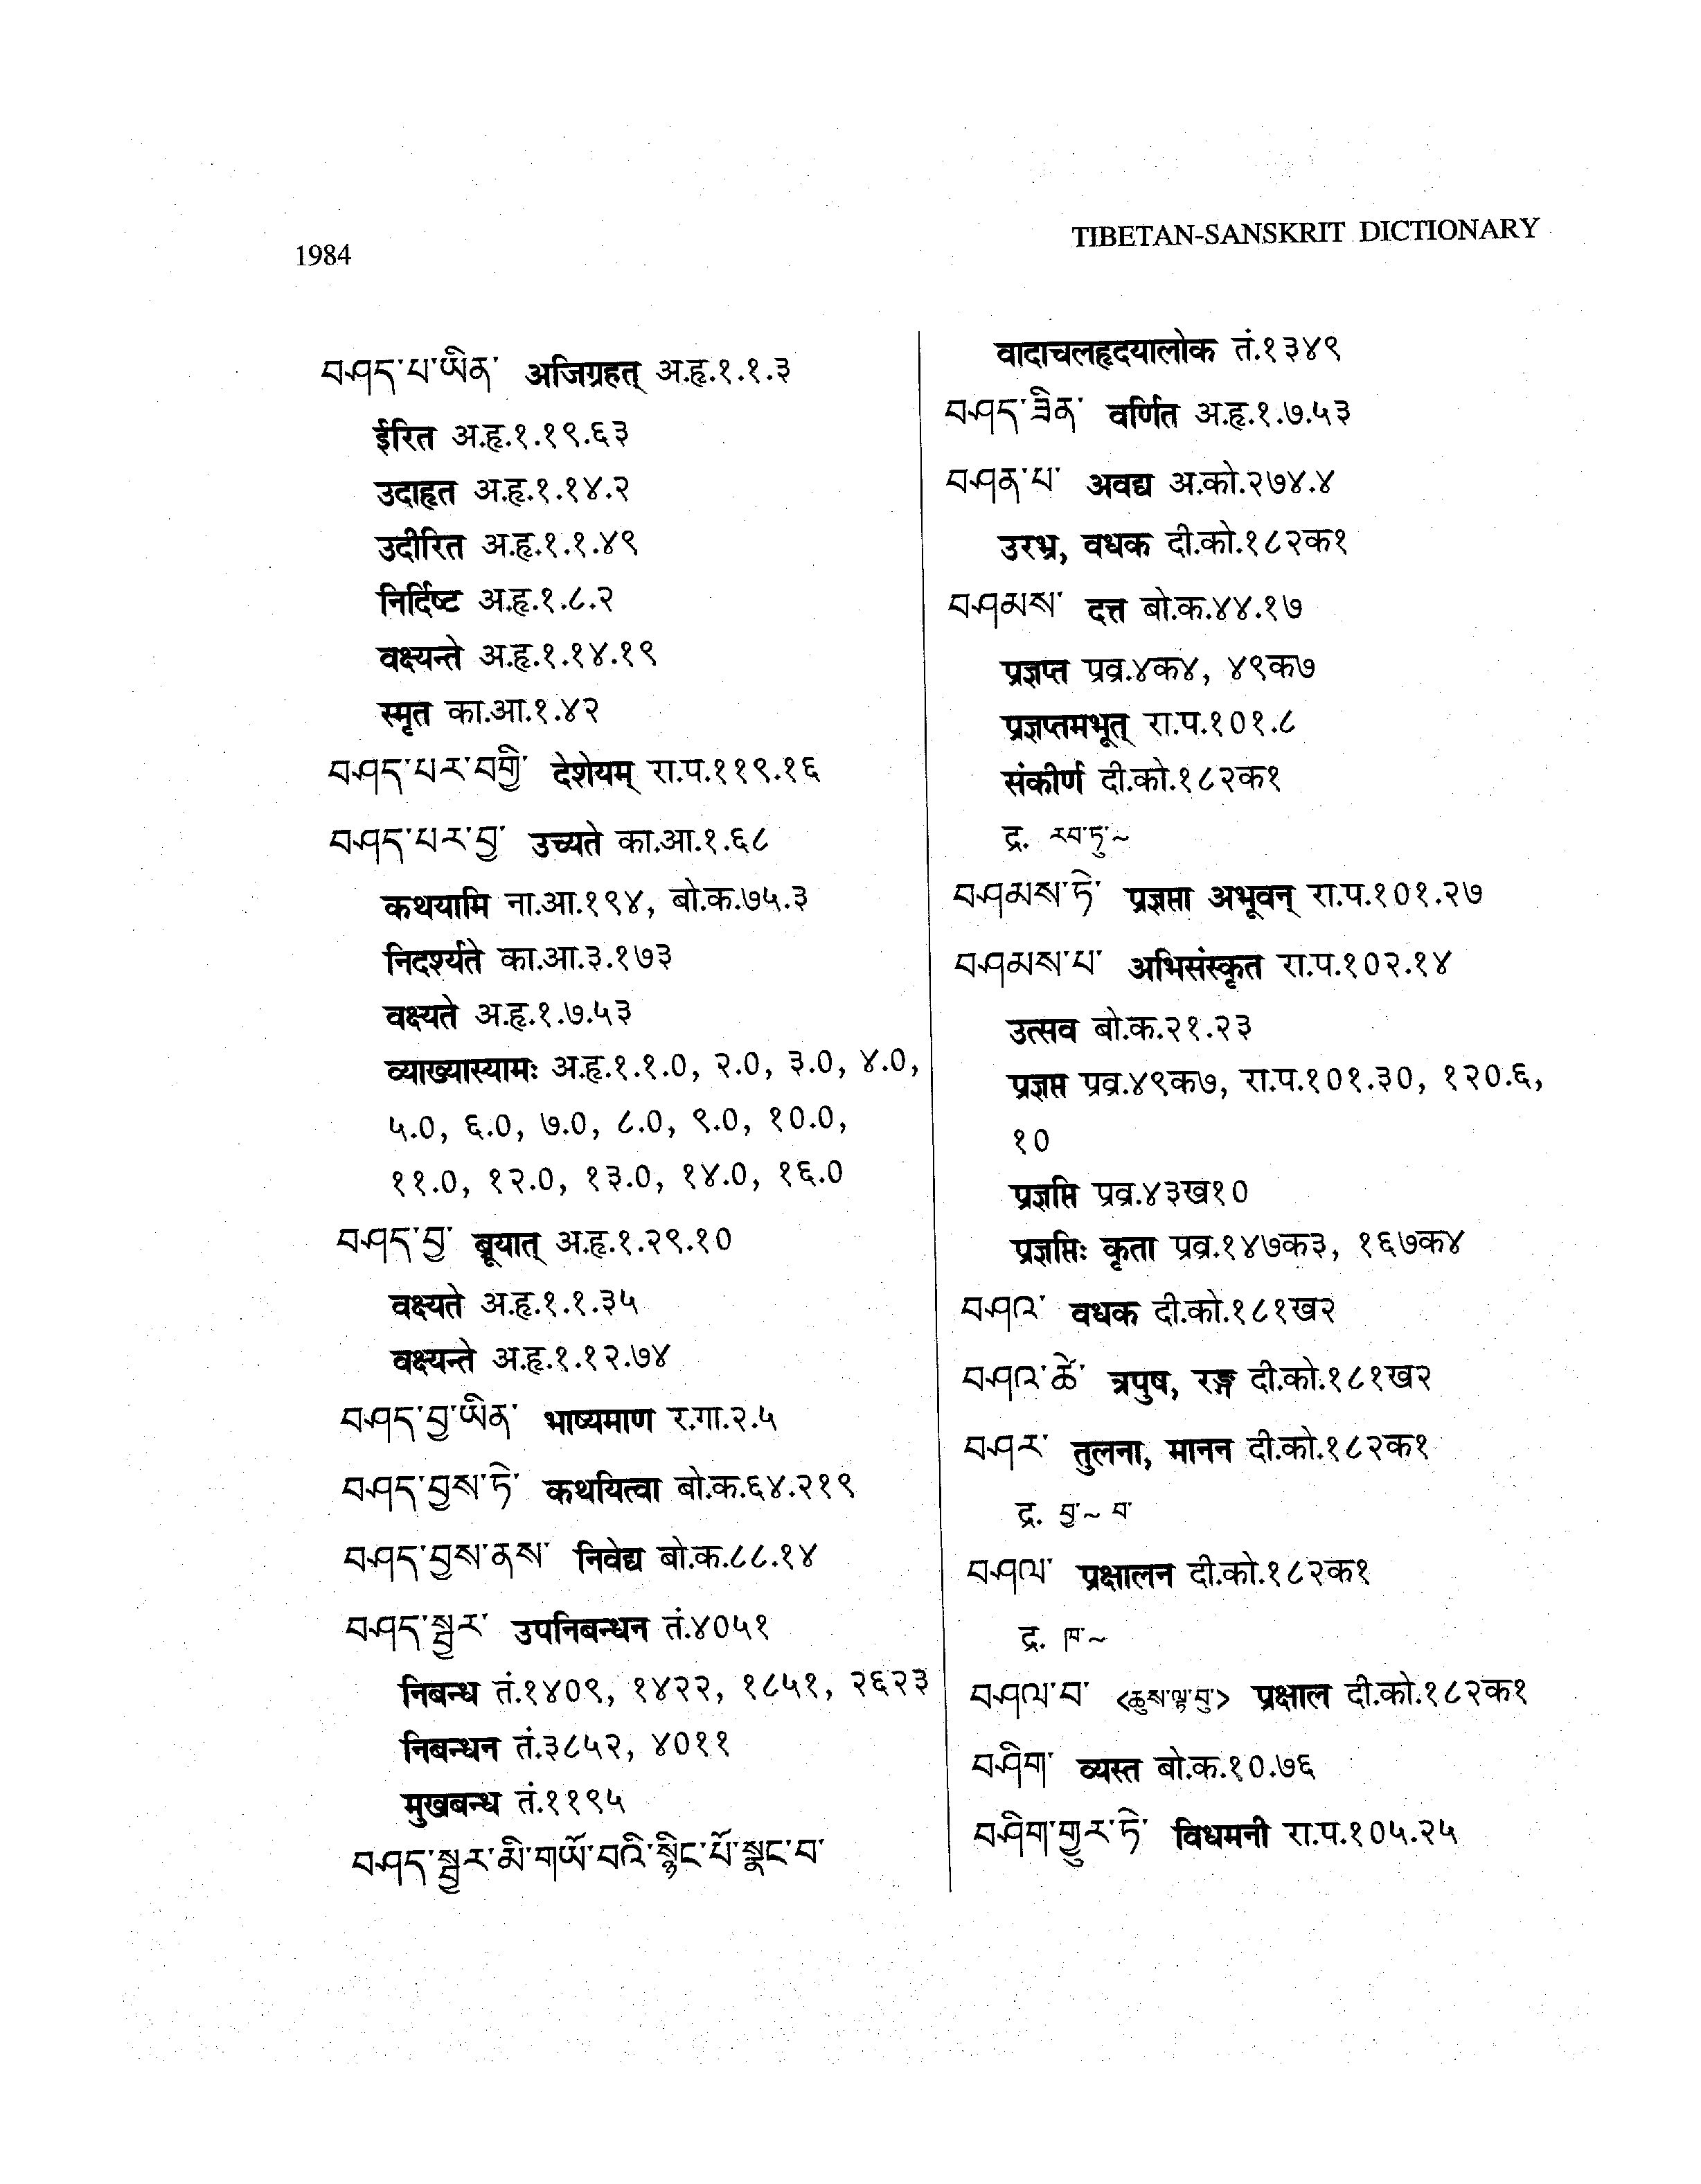 1984
TIBETAN-SANSKRIT DICTIONARY
བཤད་པ་ཡིན་ अजिग्रहत् अ.हृ.१.१.३
ईरित अ.हृ.१.१९.६३
उदाहृत अ.हृ.१.१४.२
उदीरित अ.हृ.१.१.४९
निर्दिष्ट अ.हृ.१.८.२
वक्ष्यन्ते अ.हृ.१.१४.१९
स्मृत का.आ.१.४२
བཤད་པར་བགྱི་ देशेयम् रा.प.११९.१६
བཤད་པར་བྱ་ उच्यते का.आ.१.६८
कथयामि ना.आ.१९४, बो.क.७५.३
निदर्श्यते का.आ.३.१७३
वक्ष्यते अ.हृ.१.७.५३
व्याख्यास्यामः अ.हृ.१.१.०, २.०, ३.०, ४.०,
५.०, ६.०, ७.०, ८.०, ९.०, १०.०,
११.०, १२.०, १३.०, १४.०, १६.०
བཤད་བྱ་ ब्रूयात् अ.हृ.१.२९.१०
वक्ष्यते अ.हृ.१.१.३५
वक्ष्यन्ते अ.हृ.१.१२.७४
བཤད་བྱ་ཡིན་ भाष्यमाण र.गा.२.५
བཤད་བྱས་ཏེ་ कथयित्वा बो.क.६४.२१९
བཤད་བྱས་ནས་ निवेद्य बो.क.८८.१४
བཤད་སྦྱར་ उपनिबन्धन तं.४०५१
निबन्ध तं.१४०९, १४२२, १८५१, २६२३
निबन्धन तं.३८५२, ४०११
मुखबन्ध तं.११९५
བཤད་སྦྱར་མི་གཡོ་བའི་སྙིང་པོ་སྣང་བ་
वादाचलहृदयालोक तं.१३४९
བཤད་ཟིན་ वर्णित अ.हृ.१.७.५३
བཤན་པ་ अवद्य अ.को.२७४.४
उरभ्र, वधक दी.को.१८२क१
བཤམས་ दत्त बो.क.४४.१७
प्रज्ञप्त प्रव्र.४क४, ४९क७
प्रज्ञप्तमभूत् रा.प.१०१.८
संकीर्ण दी.को.१८२क१
द्र. རབ་ཏུ་~
བཤམས་ཏེ་ प्रज्ञप्ता अभूवन् रा.प.१०१.२७
བཤམས་པ་ अभिसंस्कृत रा.प.१०२.१४
उत्सव बो.क.२१.२३
प्रज्ञप्त प्रव्र.४९क७, रा.प.१०१.३०, १२०.६,
१०
प्रज्ञप्ति प्रव्र.४३ख१०
प्रज्ञप्तिः कृता प्रव्र.१४७क३, १६७क४
བཤའ་ वधक दी.को.१८१ख२
བཤའ་ཚེ་ त्रपुष, रङ्ग दी.को.१८१ख२
བཤར་ तुलना, मानन दी.को.१८२क१
द्र. བྱ་~ བ་
བཤལ་ प्रक्षालन दी.को.१८२क१
द्र. ཁ་~
བཤལ་བ་ <ཆུས་ལྟ་བུ་> प्रक्षाल दी.को.१८२क१
བཤིག་ व्यस्त बो.क.१०.७६
བཤིག་གྱུར་ཏེ་ विधमनी रा.प.१०५.२५